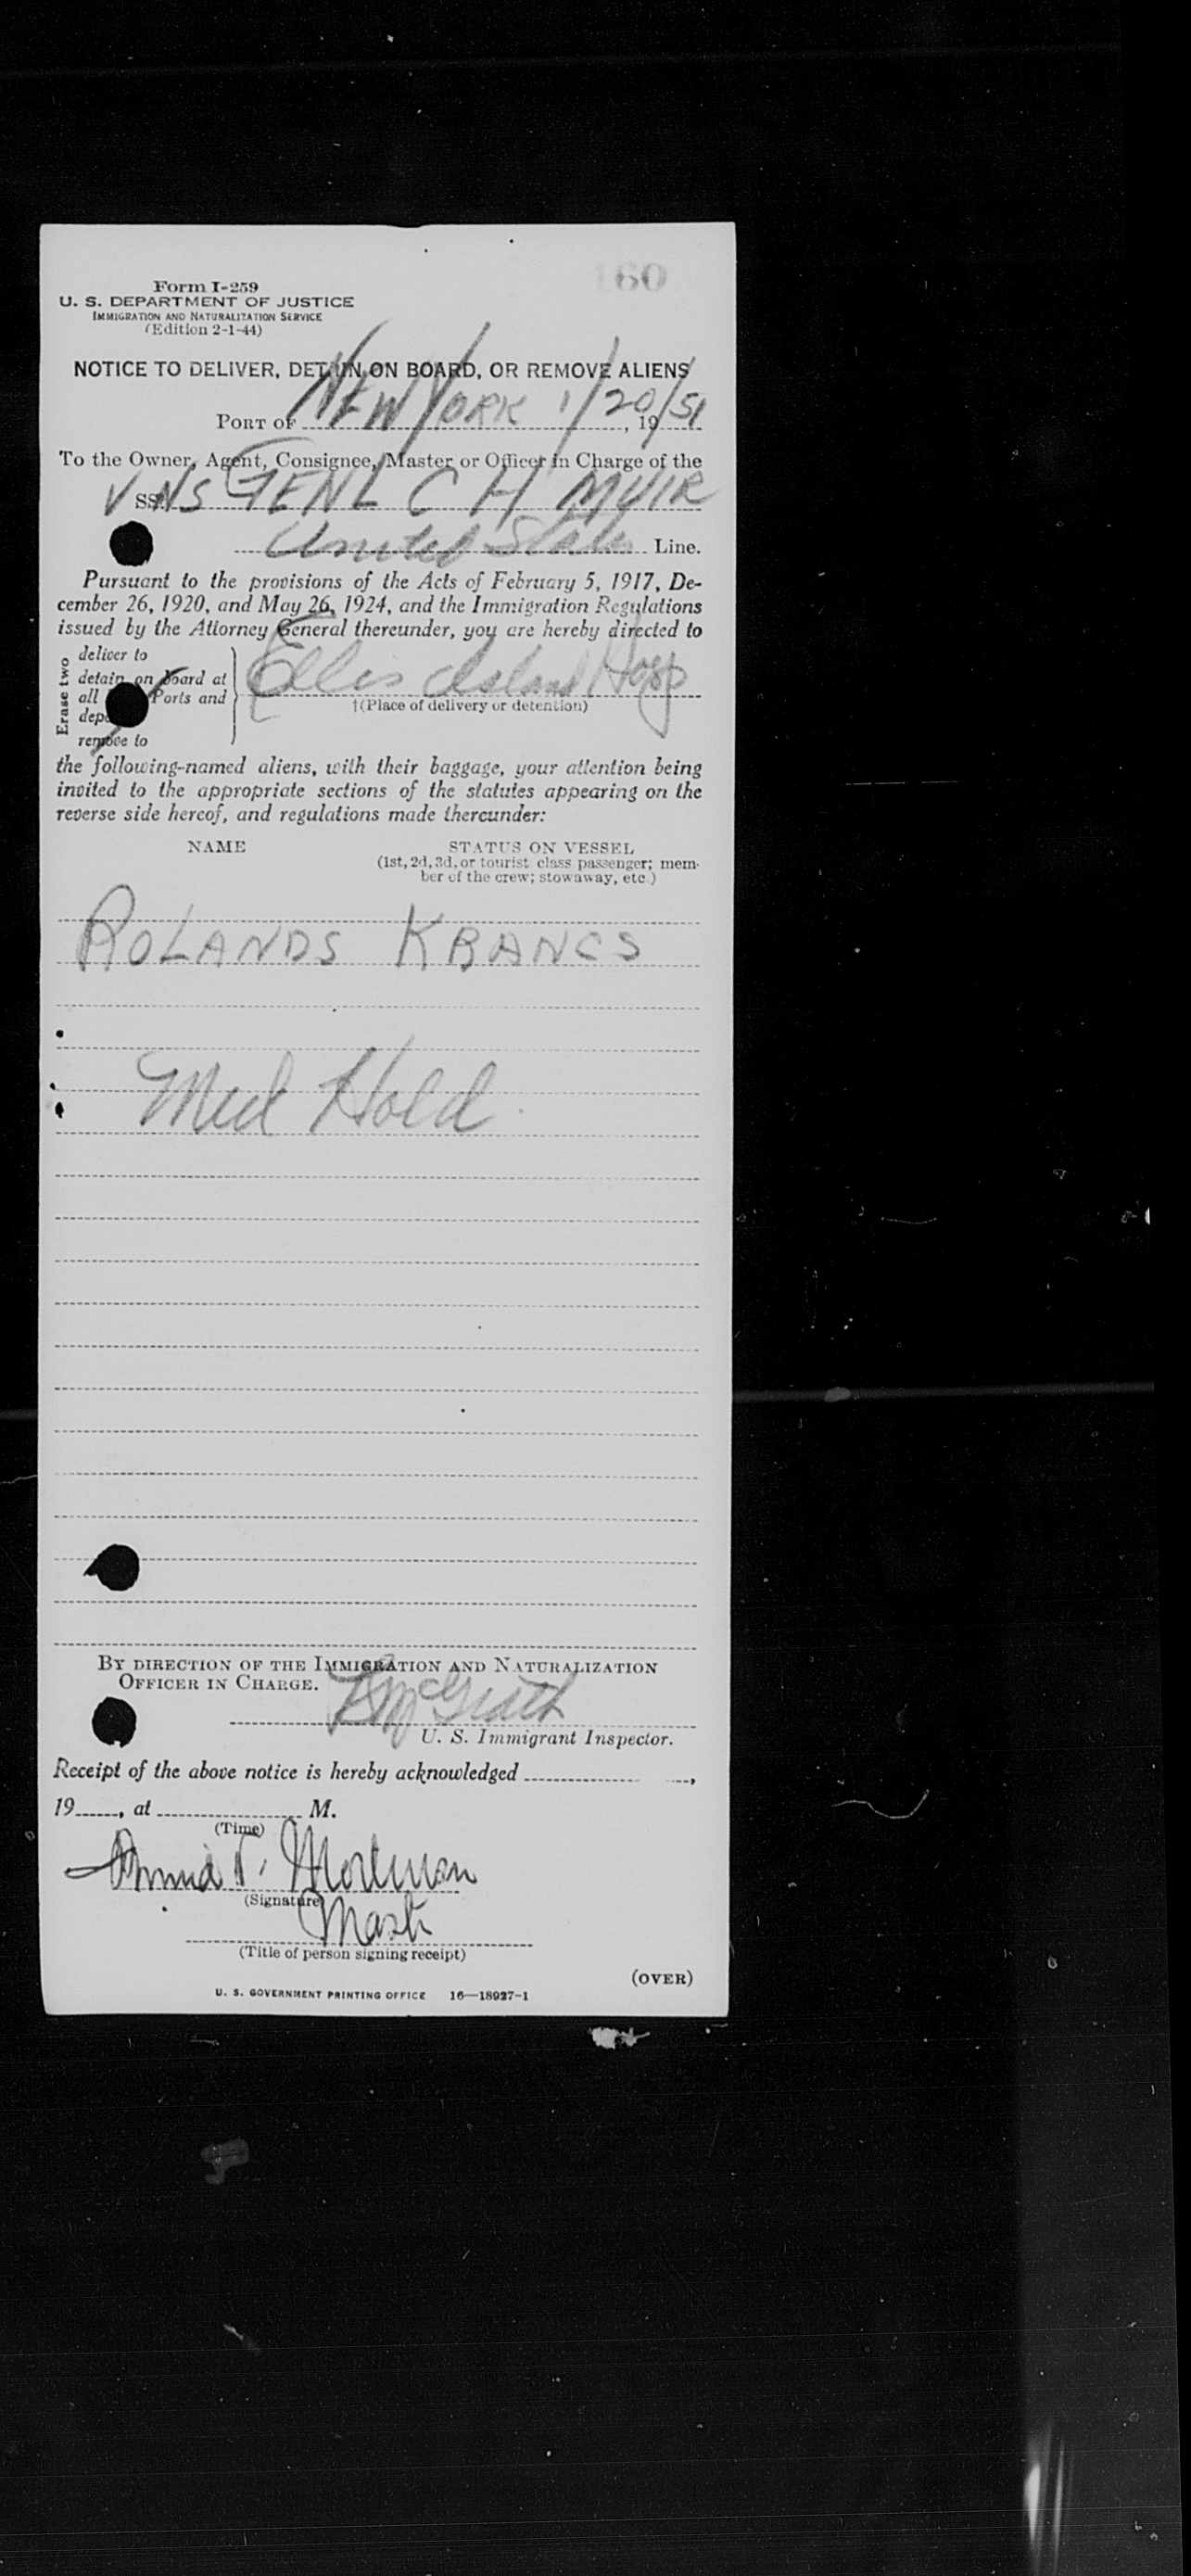 160
Form I-259
U. S. DEPARTMENT OF JUSTICE
IMMIGRATION AND NATURALIZATION SERVICE
(Edition 2-1-44)
NOTICE TO DELIVER, DETAIN ON BOARD, OR REMOVE ALIENS
PORT OF NEW YORK 1/20/51, 19
To the Owner, Agent, Consignee, Master or Officer in Charge of the
SS. GENL C H MUIR
United States Line.
Pursuant to the provisions of the Acts of February 5, 1917, De-
cember 26, 1920, and May 26, 1924, and the Immigration Regulations
issued by the Attorney General thereunder, you are hereby directed to
Erase two
deliver to
detain on board at
all Ports and
remove to
Ellis Island Hosp
†(Place of delivery or detention)
the following-named aliens, with their baggage, your attention being
invited to the appropriate sections of the statutes appearing on the
reverse side hereof, and regulations made thereunder:
NAME STATUS ON VESSEL
(1st, 2d, 3d, or tourist class passenger; mem-
ber of the crew; stowaway, etc.)
ROLANDS KRANCS
Med Hold.
BY DIRECTION OF THE IMMIGRATION AND NATURALIZATION
OFFICER IN CHARGE.
McGrath
U. S. Immigrant Inspector.
Receipt of the above notice is hereby acknowledged ,
19 , at M.
(Time)
(Signature)
(Title of person signing receipt)
(OVER)
U. S. GOVERNMENT PRINTING OFFICE 16—18927-1